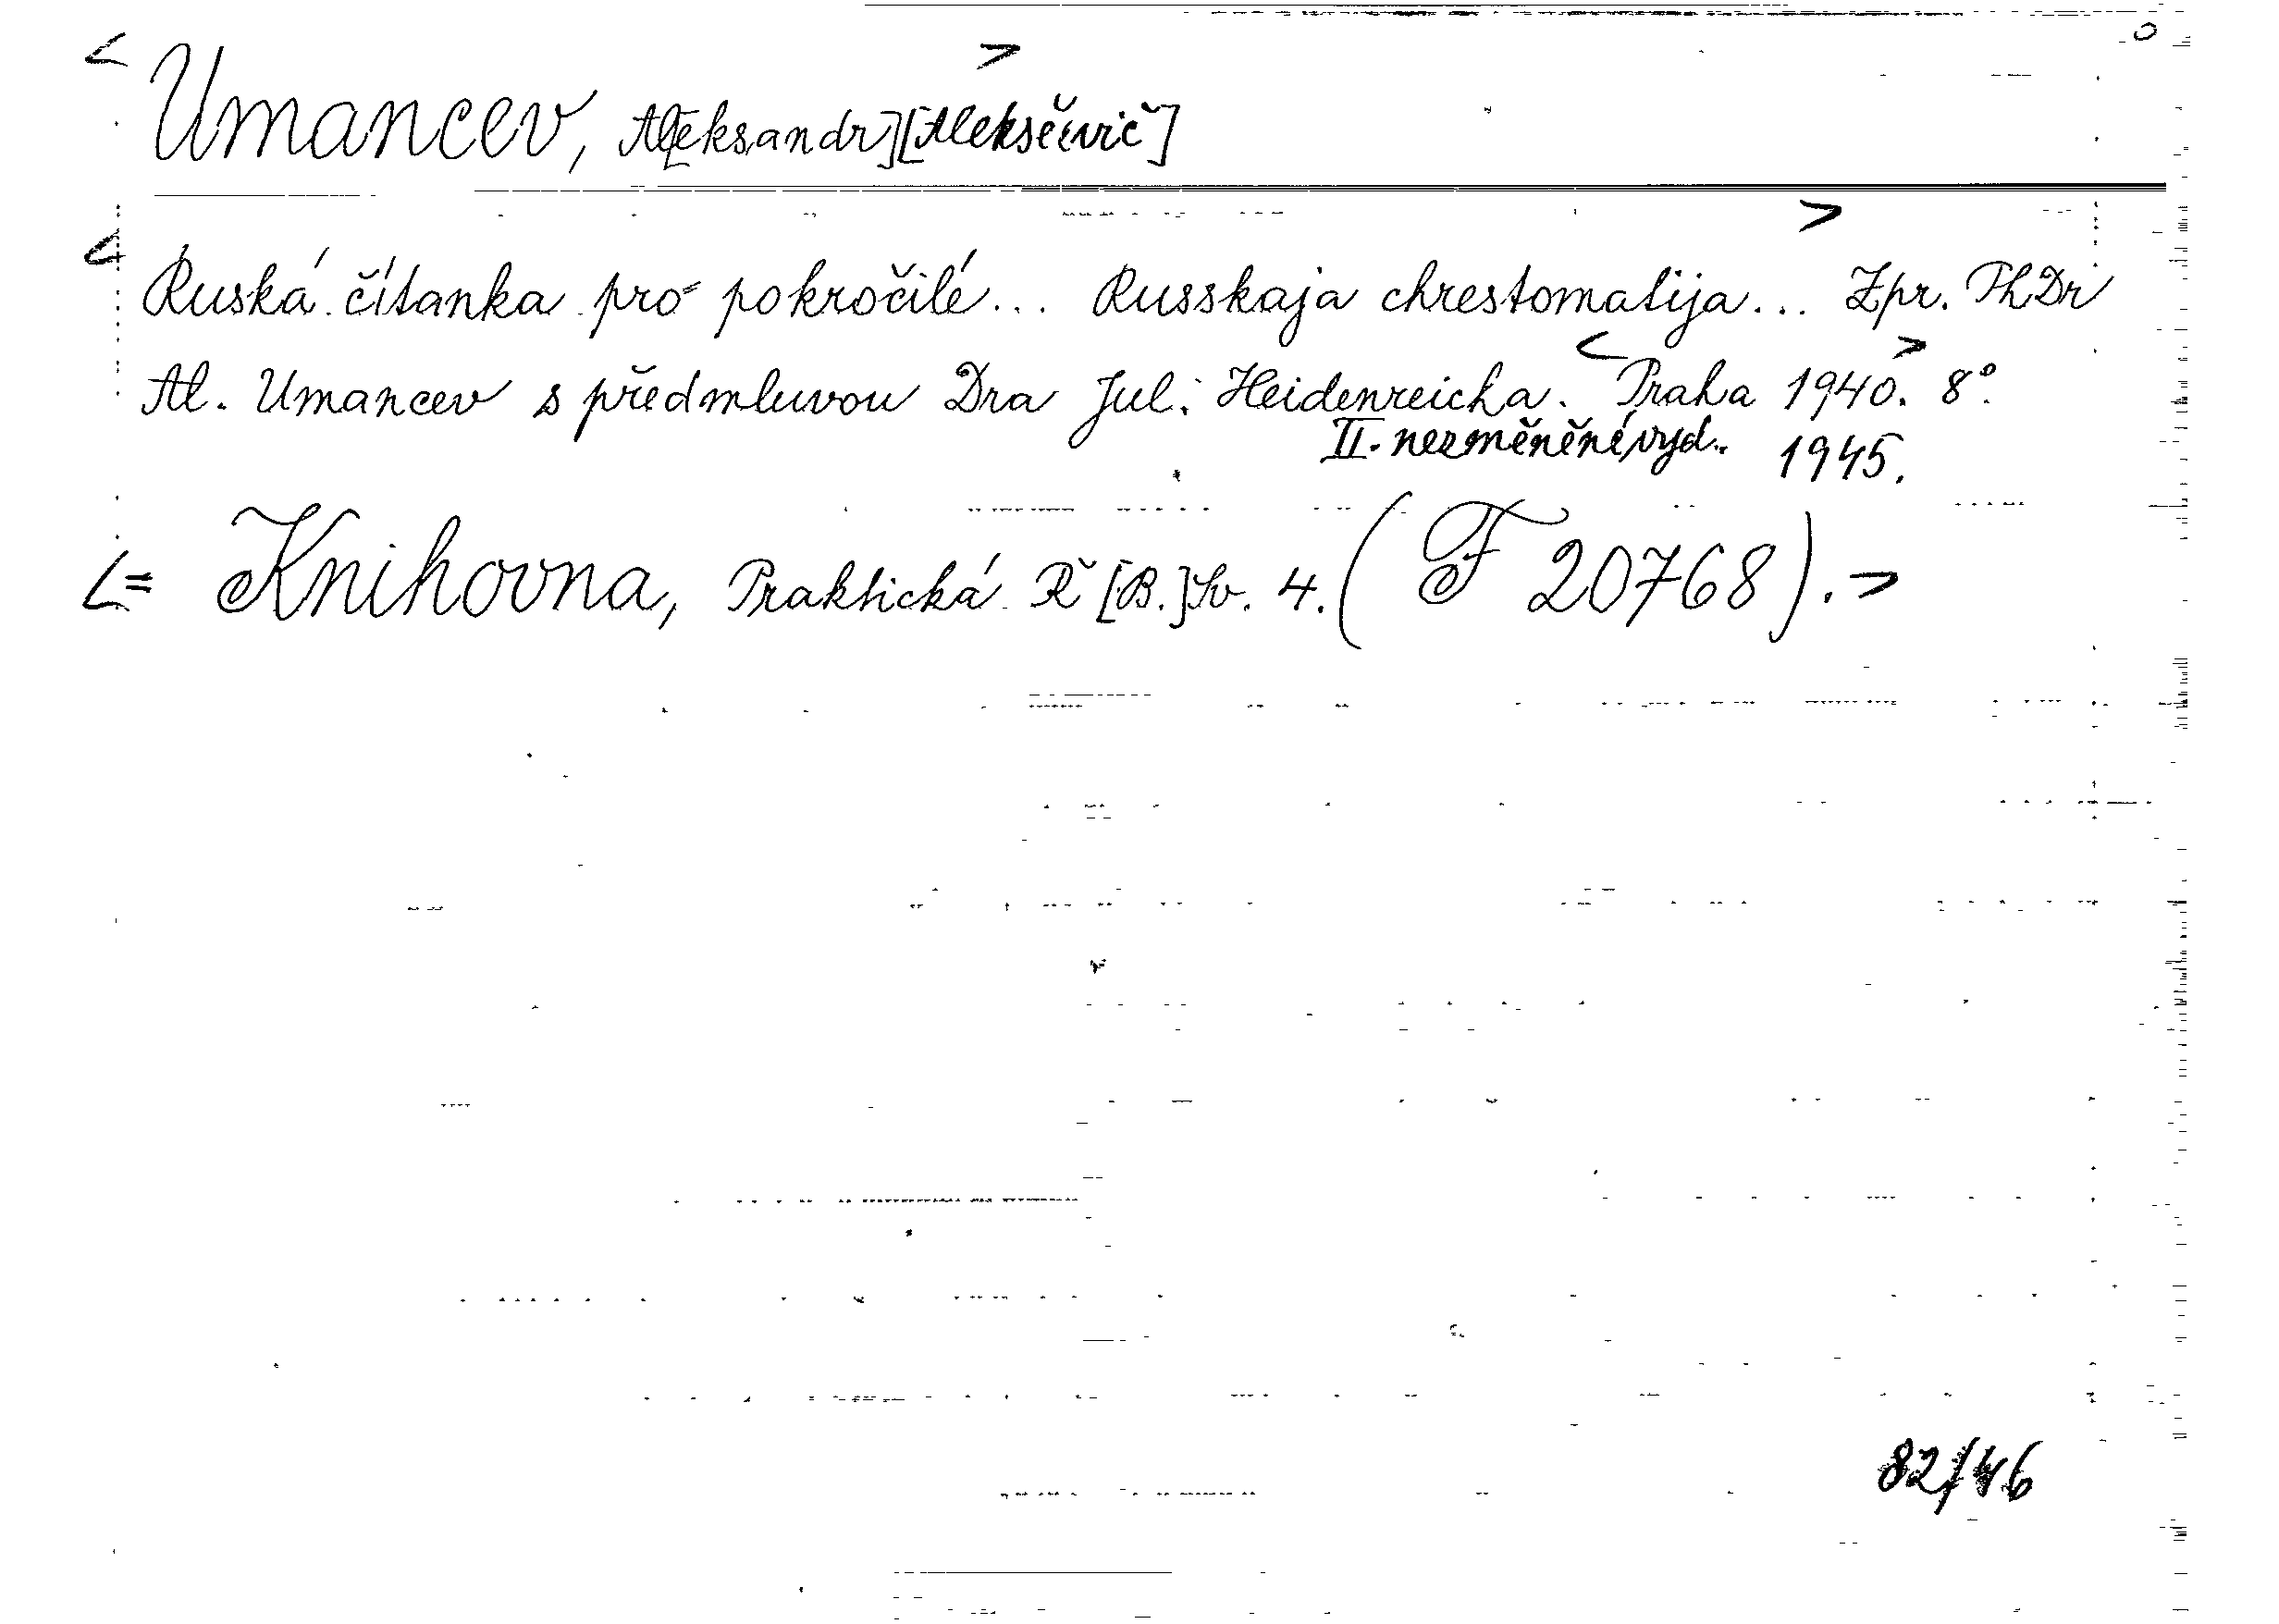 < Umancev, Al[eksandr] [Aleksěevič] >
< Ruská čítanka pro pokročilé... Russkaja chrestomatija... > Zpr. PhDr
Al. Umancev s předmluvou Dra Jul. Heidenreicha. < Praha 1940. > 8°.
II. nezměněné vyd. 1945.
<= Knihovna, Praktická Ř [B.] Sv. 4. (F 20768). >
82/46